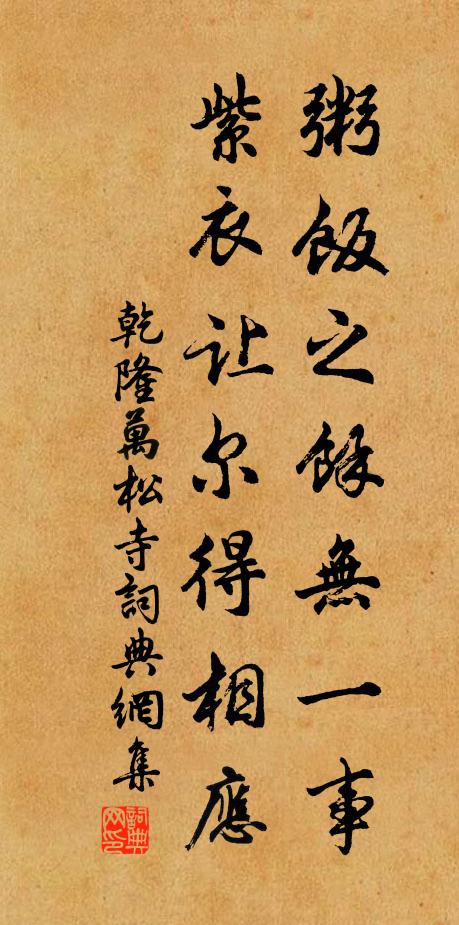 粥飯之餘無一事
紫衣让尔得相應
乾隆萬松寺詞典網集
詞典网印